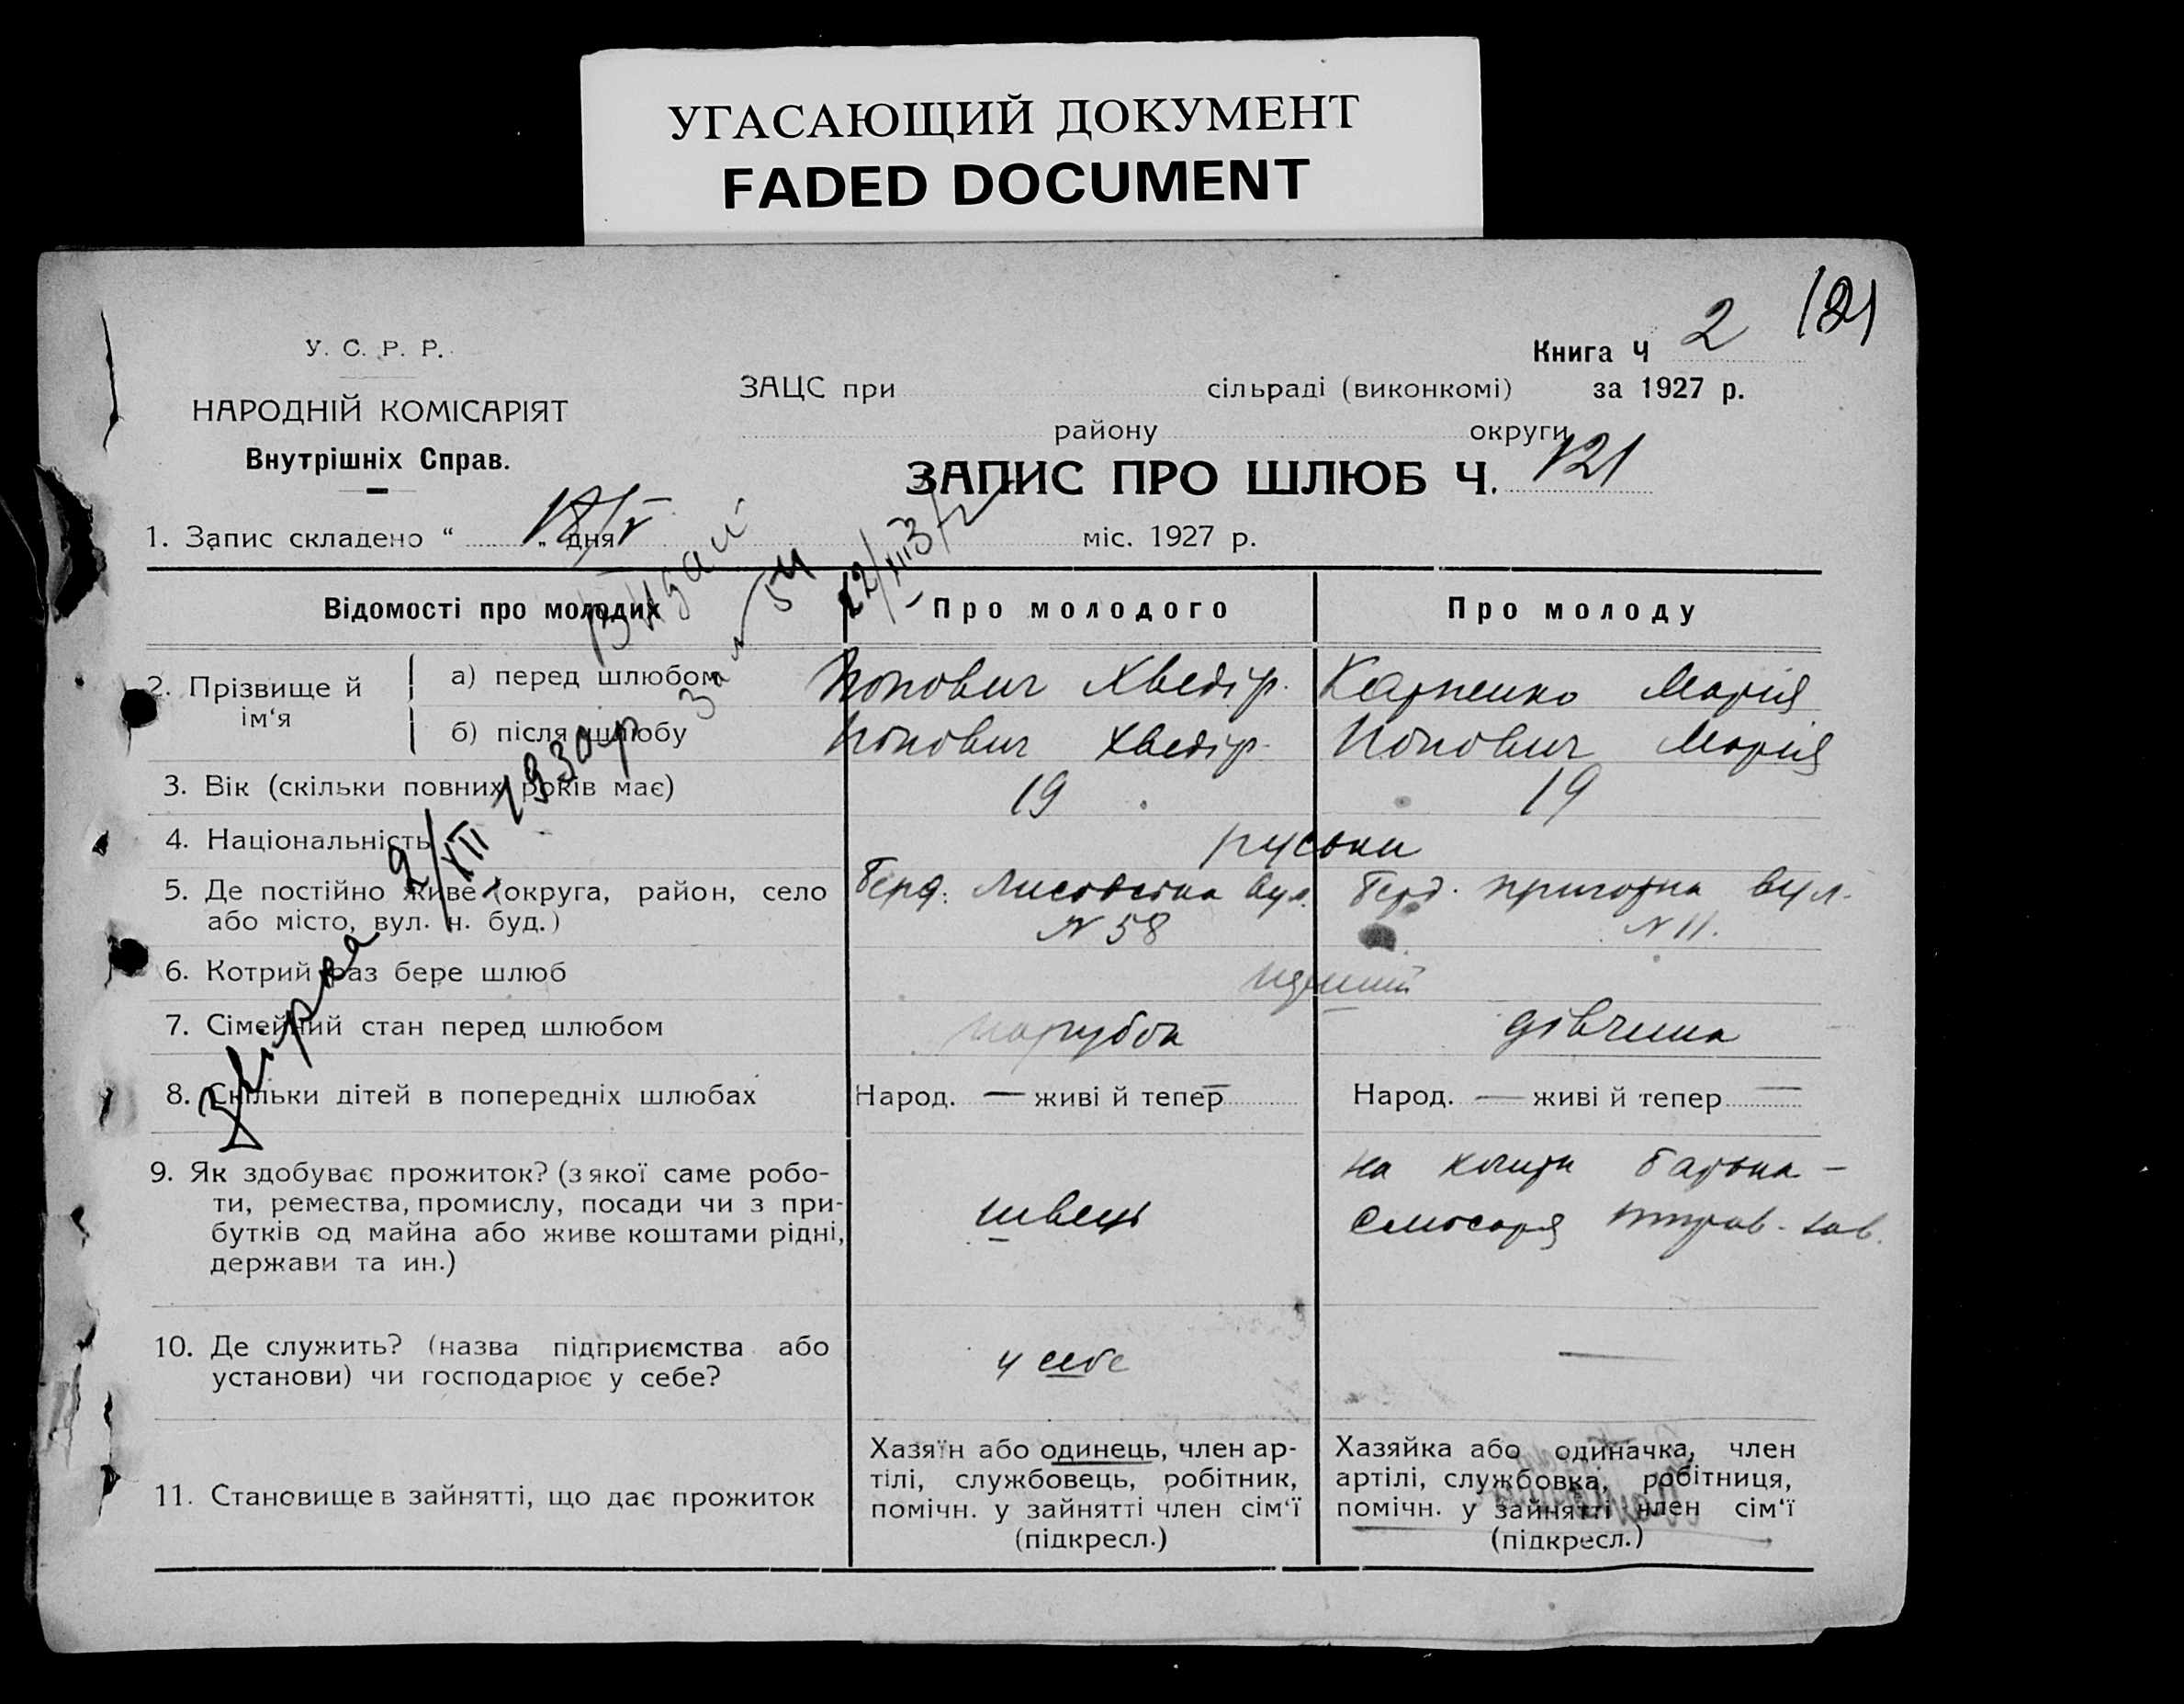 УГАСАЮЩИЙ ДОКУМЕНТ
FADED DOCUMENT
2 121
У. С. Р. Р.
НАРОДНІЙ КОМІСАРІЯТ
Внутрішніх Справ.
Книга Ч
ЗАЦС при сільраді (виконкомі) за 1927 р.
району округи
ЗАПИС ПРО ШЛЮБ Ч. 121
1. Запис складено “ 18/V „ дня міс. 1927 р.
Видан
за № 54 22/XII 3
Відомості про молодих Про молодого Про молоду
2. Прізвище й ім‘я
а) перед шлюбом Попович Хведір. Карпенко Марія
б) після шлюбу Попович Хведір. Попович Марія
3. Вік (скільки повних років має) 19 19
4. Національність руськи
5. Де постійно живе (округа, район, село Берд. вул. Берд. вул.
або місто, вул. н. буд.) N 58 N 11.
2/XII 1930 р
6. Котрий раз бере шлюб
7. Сімейний стан перед шлюбом парубок дівчина
8. Скільки дітей в попередніх шлюбах Народ. — живі й тепер — Народ. — живі й тепер —
9. Як здобуває прожиток? (з якої саме робо- на кошти батька —
ти, ремества, промислу, посади чи з при- швець слюсаря зав.
бутків од майна або живе коштами рідні,
держави та ин.)
10. Де служить? (назва підприємства або у себе —
установи) чи господарює у себе?
11. Становище в зайнятті, що дає прожиток
Хазяїн або одинець, член ар-
тілі, службовець, робітник,
помічн. у зайнятті член сім‘ї
(підкресл.)
Хазяйка або одиначка, член
артілі, службовка, робітниця,
помічн. у зайнятті член сім‘ї
(підкресл.)